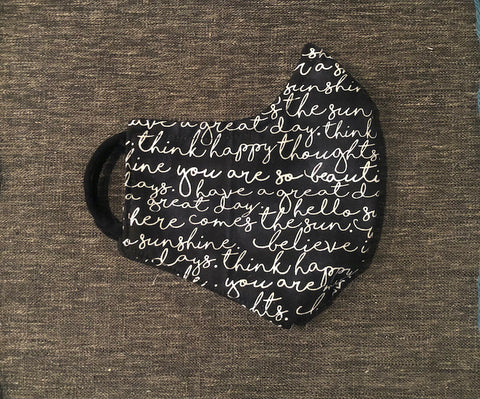 sunshin
the sun
have a great day. think
think happy thoughts.
you are so beauti
days. have a great da
a great day. hello su
here comes the sun.
o sunshine. believe i
days. think happy
you are
hts.